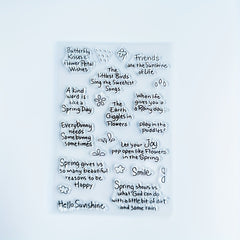 Butterfly
Kisses &
Flower Petal
Wishes
Friends
are the Sunshine
of Life
The
littlest Birds
Sing the Sweetest
Songs
A kind
word is
like a
Spring Day
When life
gives you a
Rainy day
play in the
puddles!
The
Earth
Giggles in
Flowers
Every bunny
needs
Some bunny
sometimes
Let your Joy
pop open like Flowers
in the Spring.
Spring gives us
so many beautiful
reasons to be
Happy
Smile
Spring shows us
what God can do
with a little bit of dirt
and some rain
Hello Sunshine